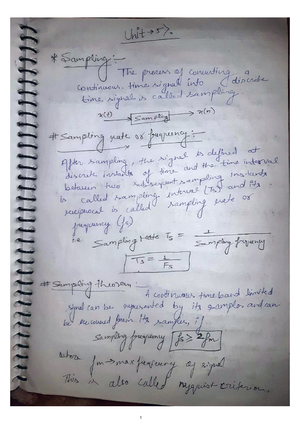 Unit → 5 %.
* Sampling :-
The process of converting a
continuous time signal into discrete
time signal is called sampling
x(t) → Sampling → x(n)
# Sampling rate or frequency :-
After sampling, the signal is defined at
discrete instants of time and the time interval
between two subsequent sampling instants
is called sampling interval (Ts) and its
reciprocal is called sampling rate or
frequency (fs)
i.e. Sampling rate Fs = 1 / Sampling frequency
Ts = 1 / Fs
# Sampling theorem
A continuous time band limited
signal can be represented by its samples and can
be recovered from its samples, if
Sampling frequency fs ≥ 2fm
where
fm → max frequency of signal
This is also called nyquist criterion.